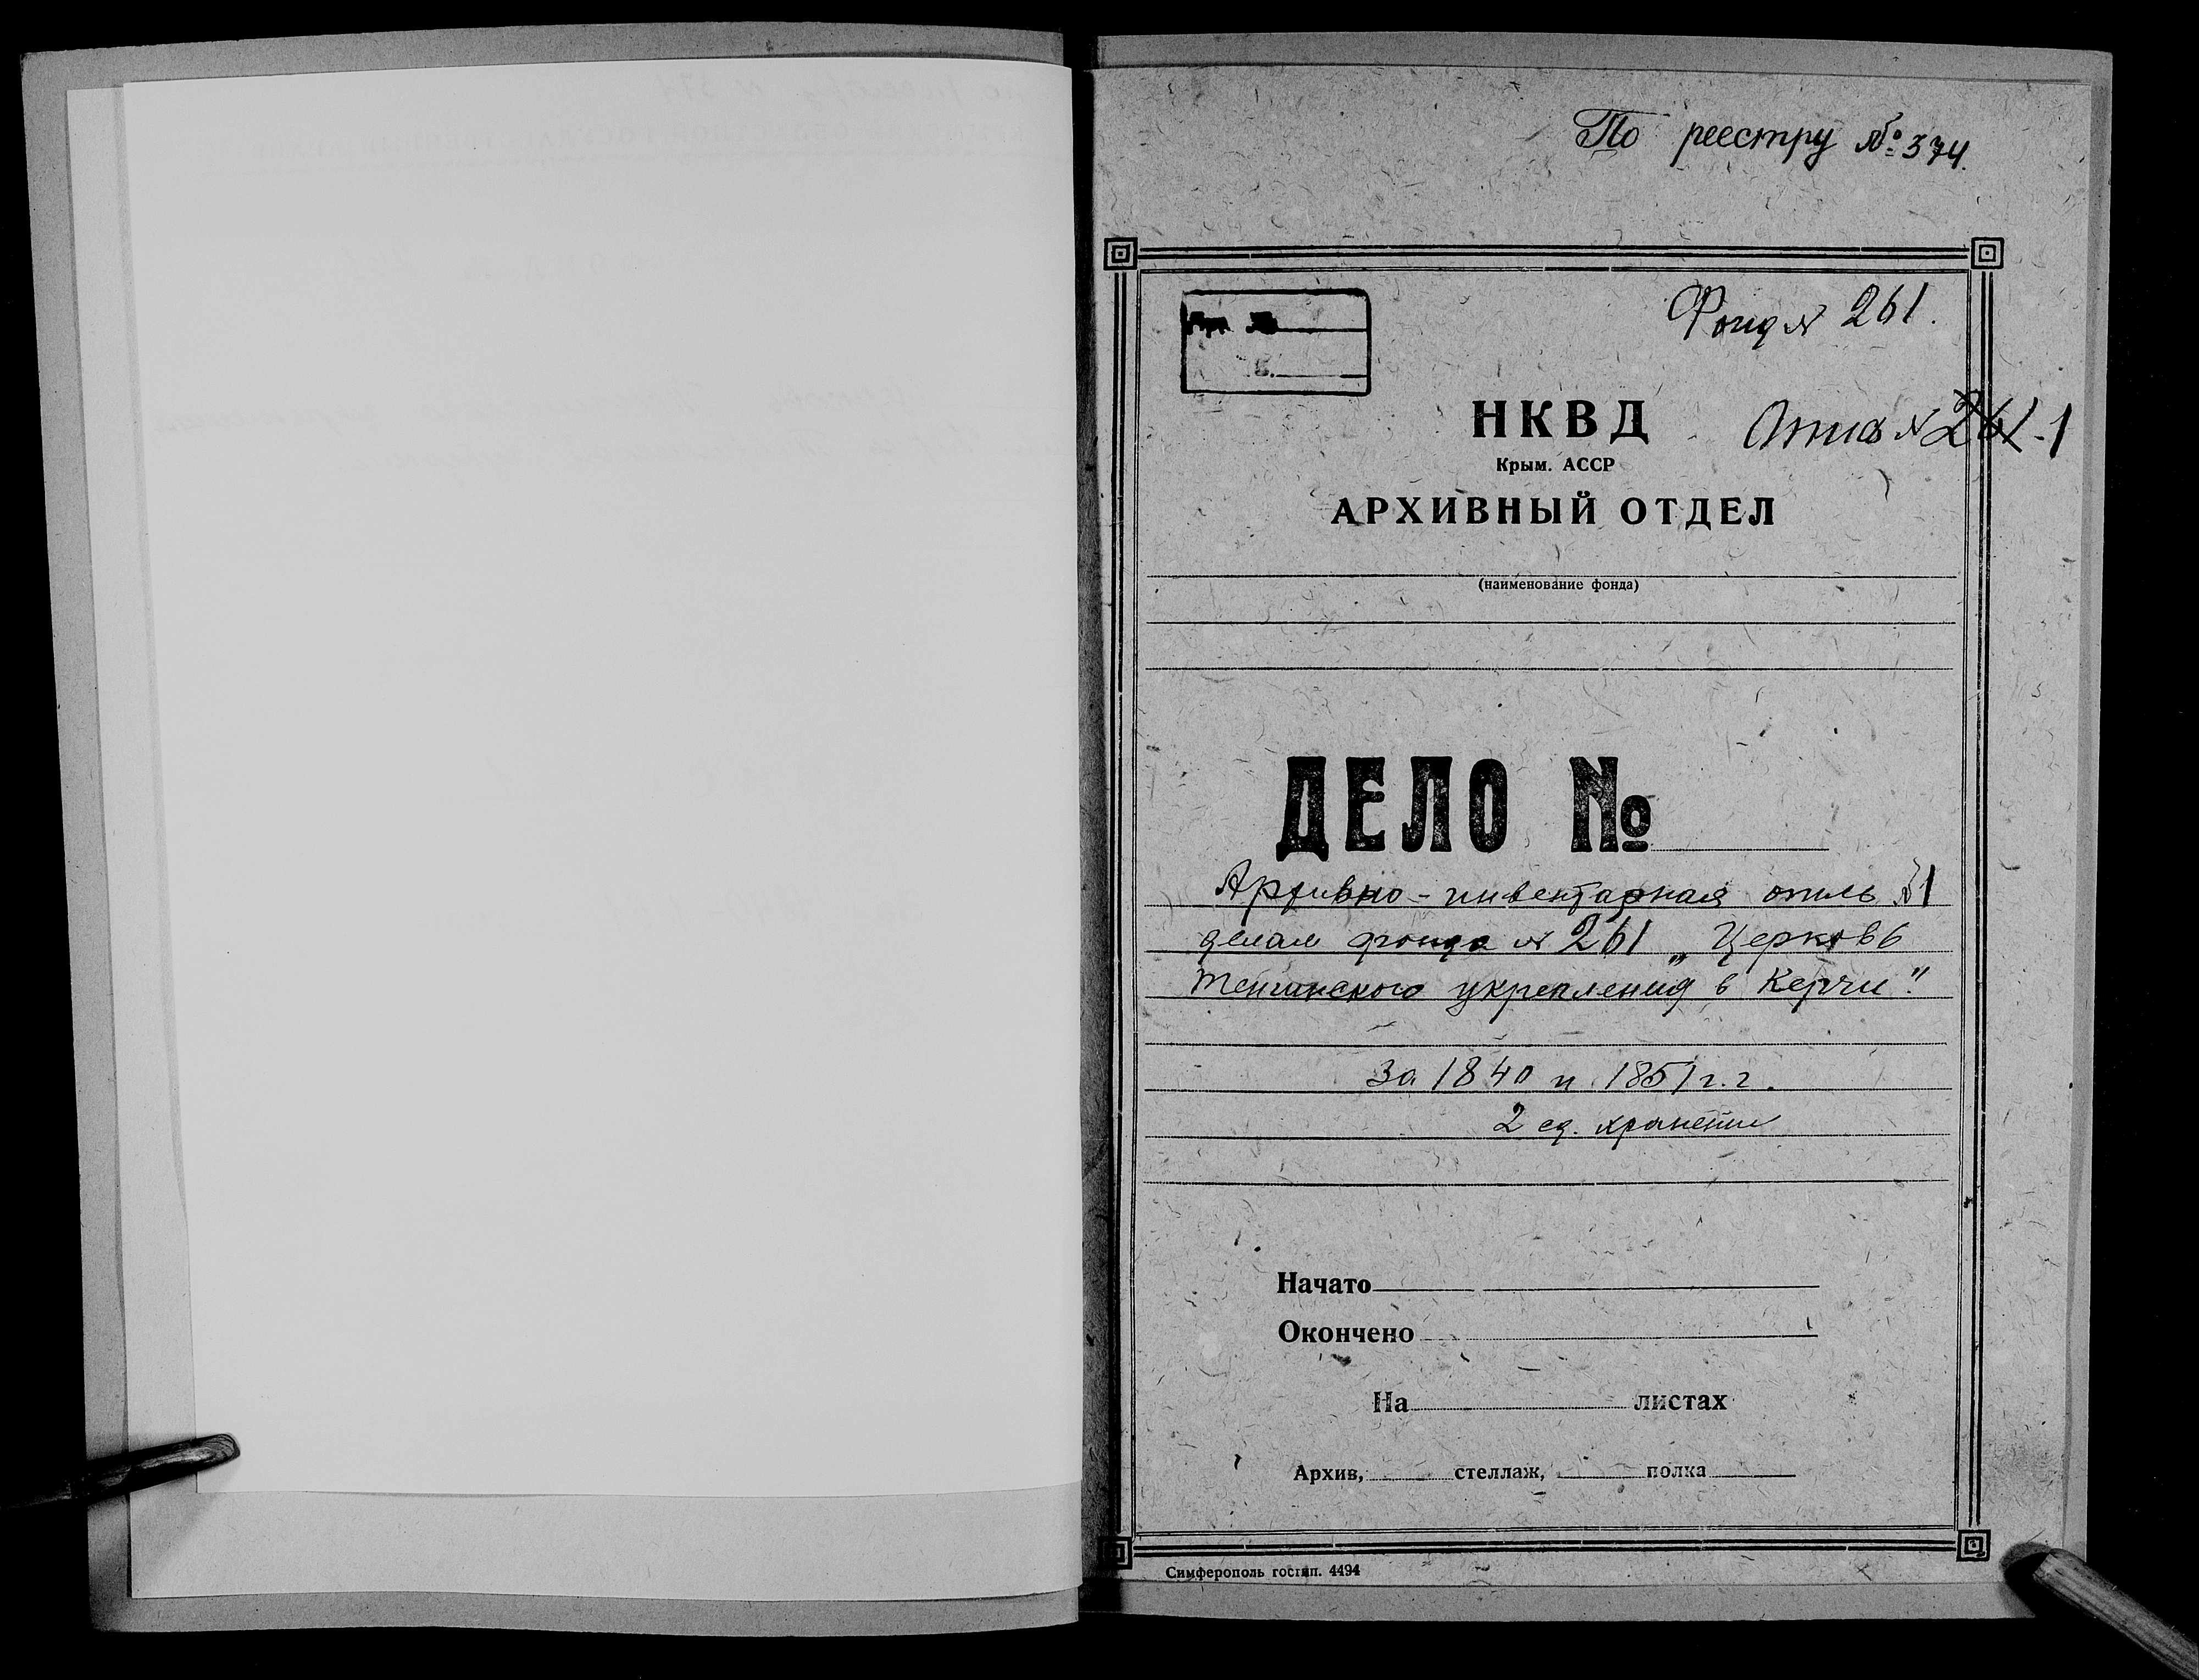 По реестру № 374.
Фонд № 261.
НКВД
Опись № 261-1
Крым. АССР
АРХИВНЫЙ ОТДЕЛ
(наименование фонда)
ДЕЛО №
Архивно-инвентарная опись №1
делам фонда № 261 „Церковь
Тенгинского укрепления в Керчи".
За 1840 и 1851 г.г.
2 ед. хранения
Начато
Окончено
На листах
Архив, стеллаж, полка
Симферополь гостип. 4494